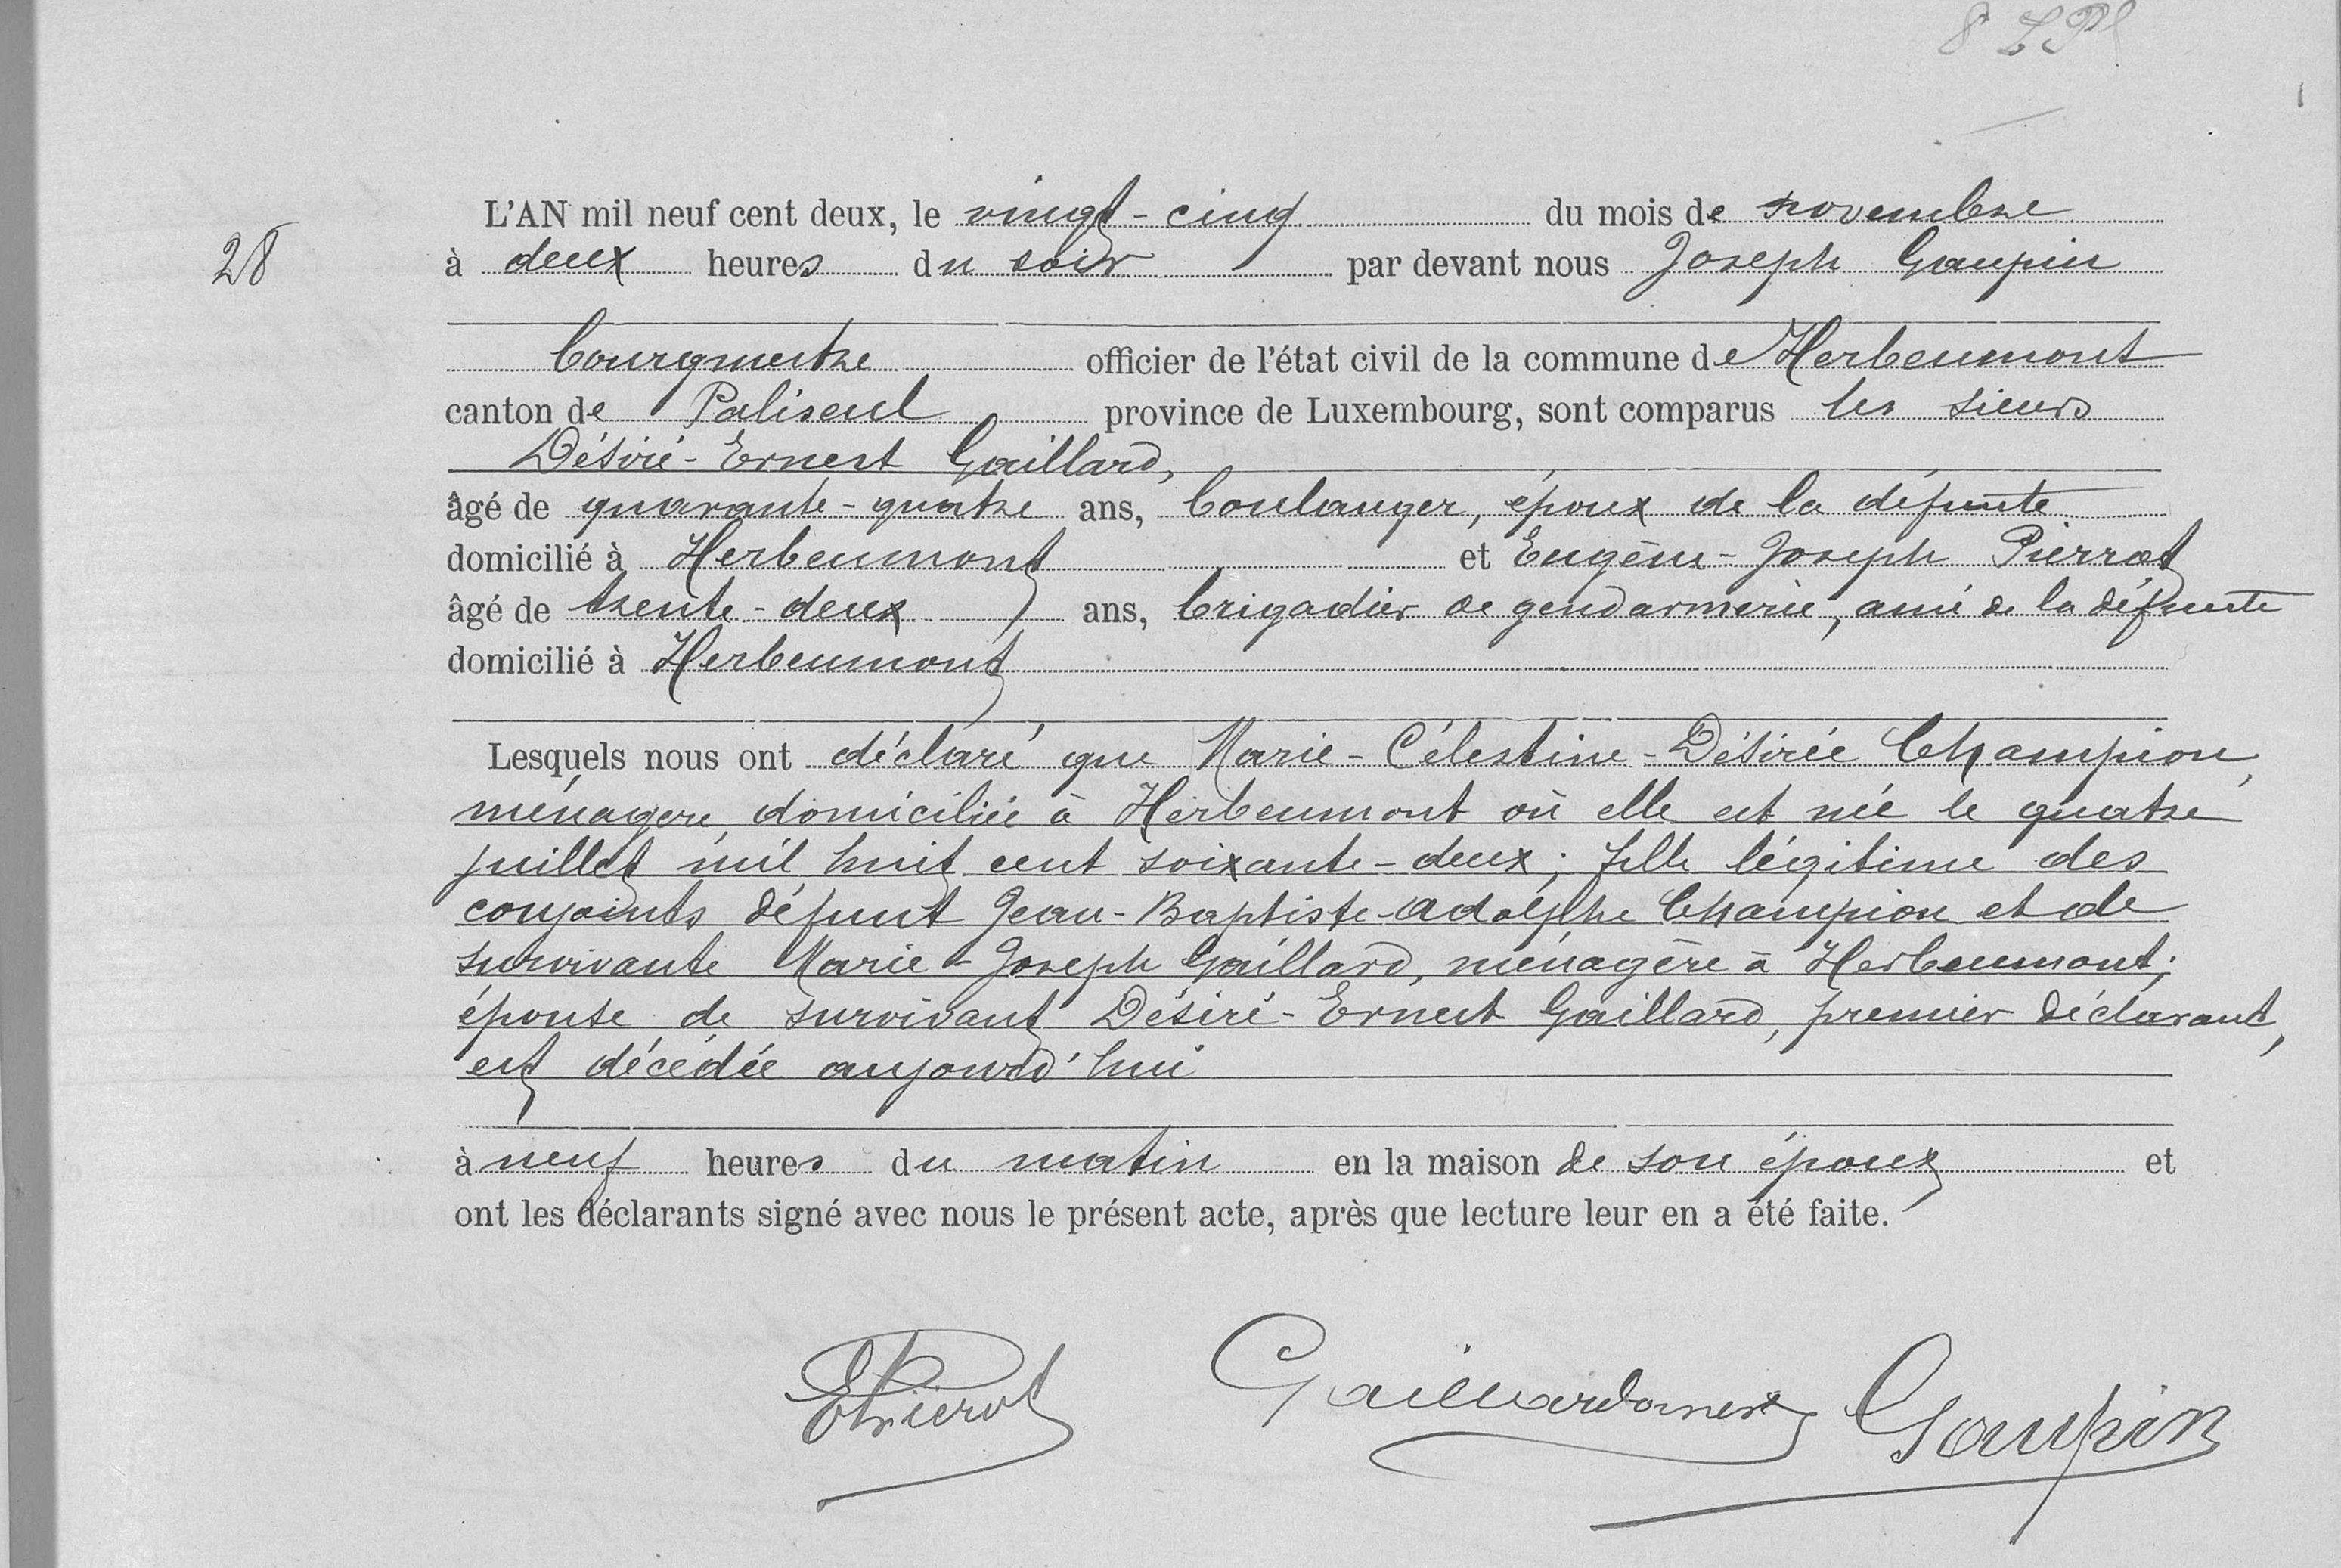 28
L'AN mil neuf cent deux, le vingt-cinq du mois de novembre
à deux heures du soir par devant nous Joseph Gaupin
bourgmestre officier de l'état civil de la commune de Herbeumont
canton de Paliseul province de Luxembourg, sont comparus les sieurs
Désiré-Ernest Gaillard,
âgé de quarante-quatre ans, boulanger, époux de la défunte
domicilié à Herbeumont et Eugène-Joseph Pierrot
âgé de trente-deux ans, brigadier de gendarmerie, ami de la défunte
domicilié à Herbeumont
Lesquels nous ont déclaré que Marie-Célestine-Désirée Champion,
ménagère, domiciliée à Herbeumont où elle est née le quatre
juillet mil huit cent soixante-deux; fille légitime des
conjoints défunt Jean-Baptiste-Adolphe Champion et de
survivante Marie-Joseph Gaillard, ménagère à Herbeumont;
épouse de survivant Désiré-Ernest Gaillard, premier déclarant,
est décédée aujourd'hui
à neuf heures du matin en la maison de son époux et
ont les déclarants signé avec nous le présent acte, après que lecture leur en a été faite.
EPierrot Gaillard Gaupin